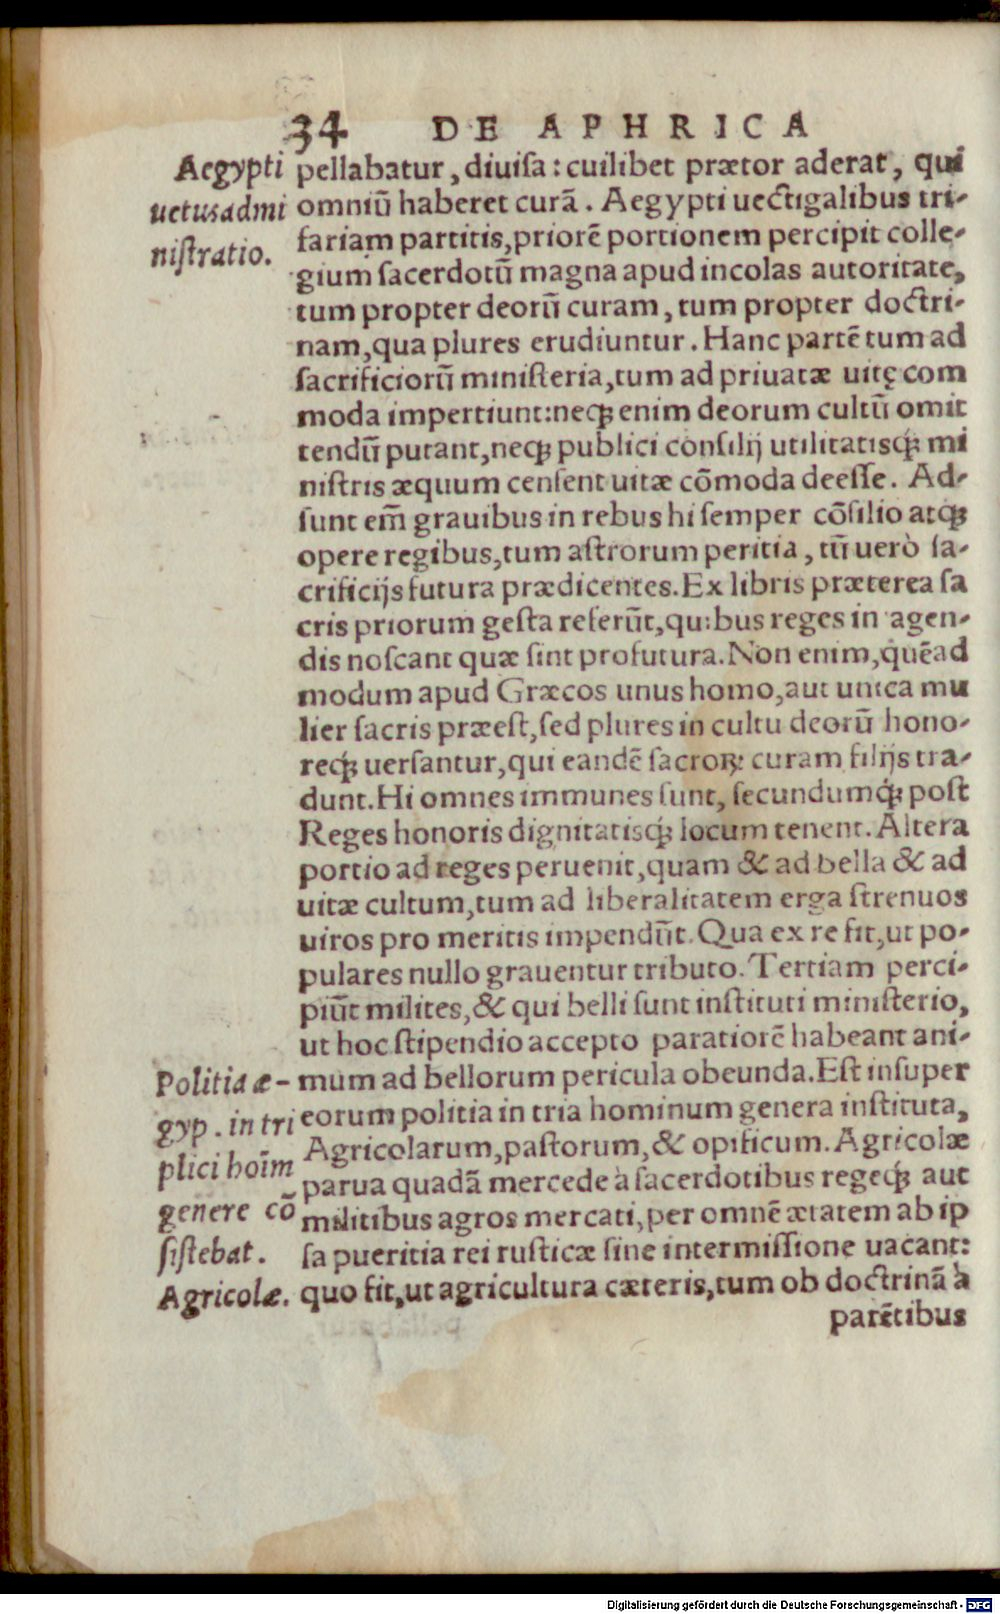 34 DE APHRICA
Aegypti
uetus admi
nistratio.
pellabatur, diuisa: cuilibet prætor aderat, qui
omniũ haberet curã. Aegypti uectigalibus tri-
fariam partitis, priorẽ portionem percipit colle-
gium sacerdotũ magna apud incolas autoritate,
tum propter deorũ curam, tum propter doctri-
nam, qua plures erudiuntur. Hanc partẽ tum ad
sacrificiorũ ministeria, tum ad priuatæ uitę com
moda impertiunt: neq́ꝫ enim deorum cultũ omit
tendũ putant, neq́ꝫ publici consilij utilitatisq́ꝫ mi
nistris æquum censent uitæ cõmoda deesse. Ad-
sunt em̃ grauibus in rebus hi semper cõsilio atq́ꝫ
opere regibus, tum astrorum peritia, tũ uerò sa-
crificijs futura prædicentes. Ex libris præterea sa
cris priorum gesta referũt, quibus reges in agen-
dis noscant quæ sint profutura. Non enim, quẽad
modum apud Græcos unus homo, aut unica mu
lier sacris præest, sed plures in cultu deorũ hono-
req́ꝫ uersantur, qui eandẽ sacroꝝ curam filijs tra-
dunt. Hi omnes immunes sunt, secundumq́ꝫ post
Reges honoris dignitatisq́ꝫ locum tenent. Altera
portio ad reges peruenit, quam & ad bella & ad
uitæ cultum, tum ad liberalitatem erga strenuos
uiros pro meritis impendũt. Qua ex re fit, ut po-
pulares nullo grauentur tributo. Tertiam perci-
piũt milites, & qui belli sunt instituti ministerio,
ut hoc stipendio accepto paratiorẽ habeant ani-
mum ad bellorum pericula obeunda. Est insuper
eorum politia in tria hominum genera instituta,
Agricolarum, pastorum, & opificum. Agricolæ
parua quadã mercede à sacerdotibus regeq́ꝫ aut
militibus agros mercati, per omnẽ ætatem ab ip
sa pueritia rei rusticæ sine intermissione uacant:
quo fit, ut agricultura cæteris, tum ob doctrinã à
Politia æ-
gyp. in tri
plici hoĩm
genere cõ
sistebat.
Agricolæ.
parẽtibus
Digitalisierung gefördert durch die Deutsche Forschungsgemeinschaft - DFG